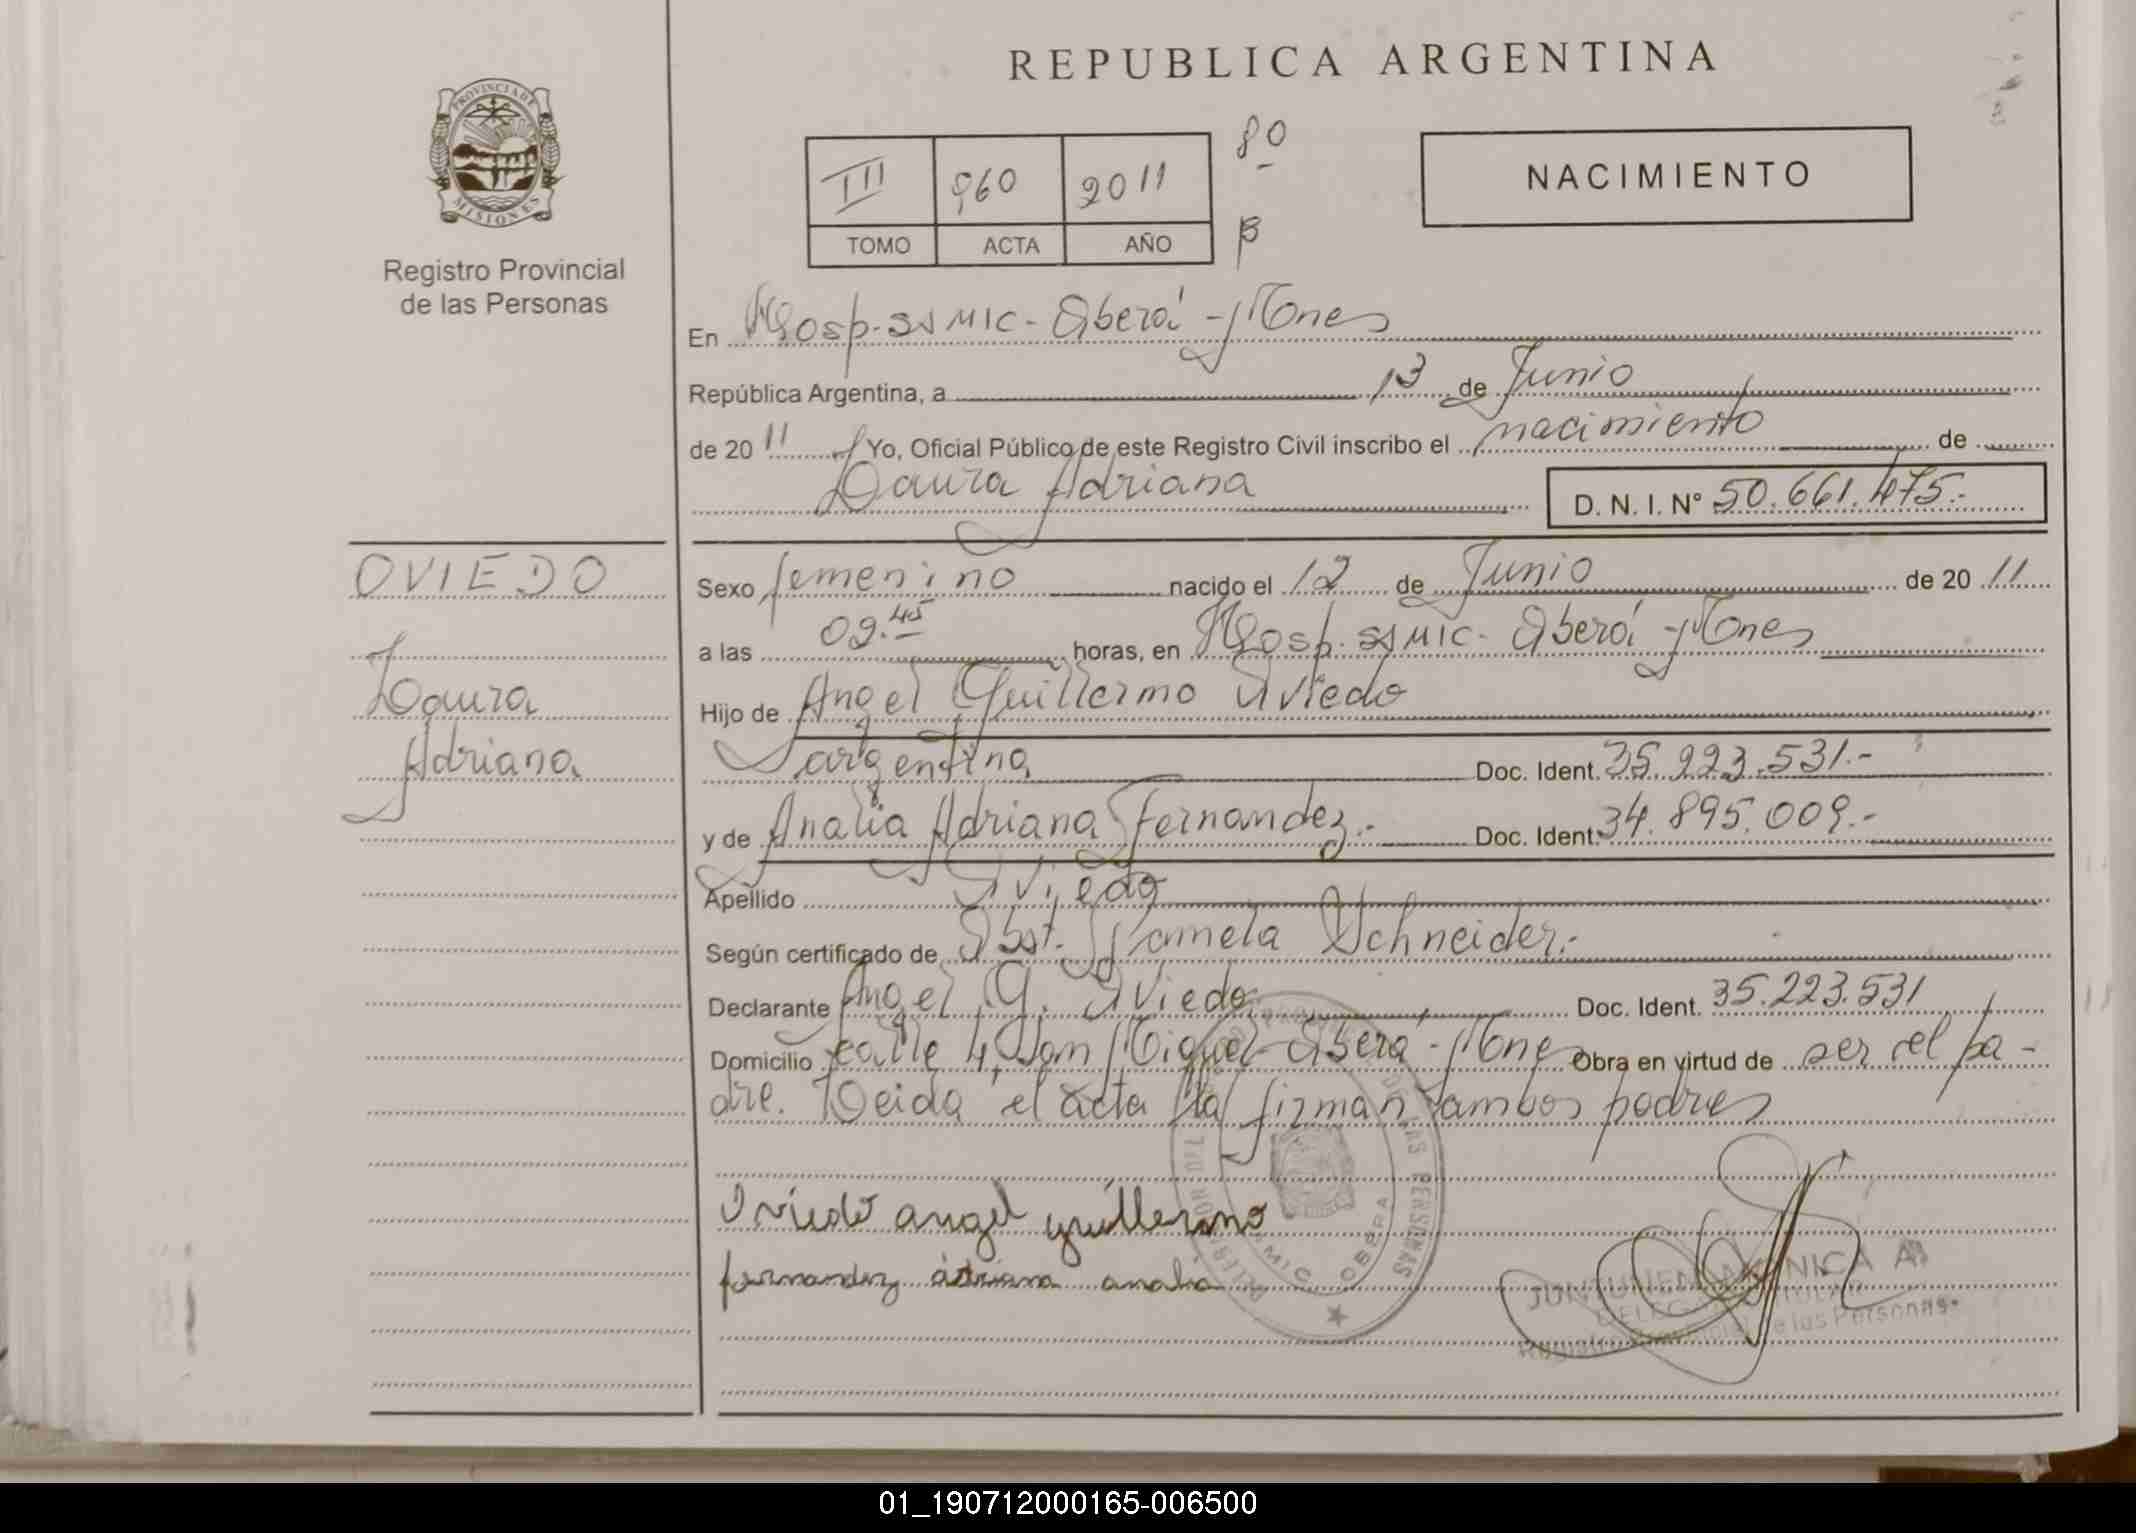 REPUBLICA ARGENTINA
PROVINCIA DE
MISIONES
Registro Provincial
de las Personas
III 960 2011 80
TOMO ACTA AÑO B
NACIMIENTO
En Hosp. SS MIC - Oberá - Mones
República Argentina, a 13 de Junio
de 20 11 Yo, Oficial Público de este Registro Civil inscribo el nacimiento de
Laura Adriana D. N. I. N° 50.661.475.-
OVIEDO
Laura
Adriana
Sexo femenino nacido el 12 de Junio de 20 11
a las 09.45 horas, en Hosp. SS MIC - Oberá - Mones
Hijo de Angel Guillermo Oviedo
argentina Doc. Ident. 35.223.531.-
y de Analia Adriana Fernandez.- Doc. Ident. 34.895.009.-
Apellido Oviedo
Según certificado de Obst. Pamela Schneider.-
Declarante Angel G. Oviedo Doc. Ident. 35.223.531
Domicilio calle 4, San Miguel - Oberá - Mones Obra en virtud de ser el pa-
dre. Leida el acta la firman ambos padres
Oviedo angel guillermo
fernandez adriana analia
DE LAS PERSONAS
OBERA
JUNTUNEN MONICA A.
Registro Provincial de las Personas
01_190712000165-006500